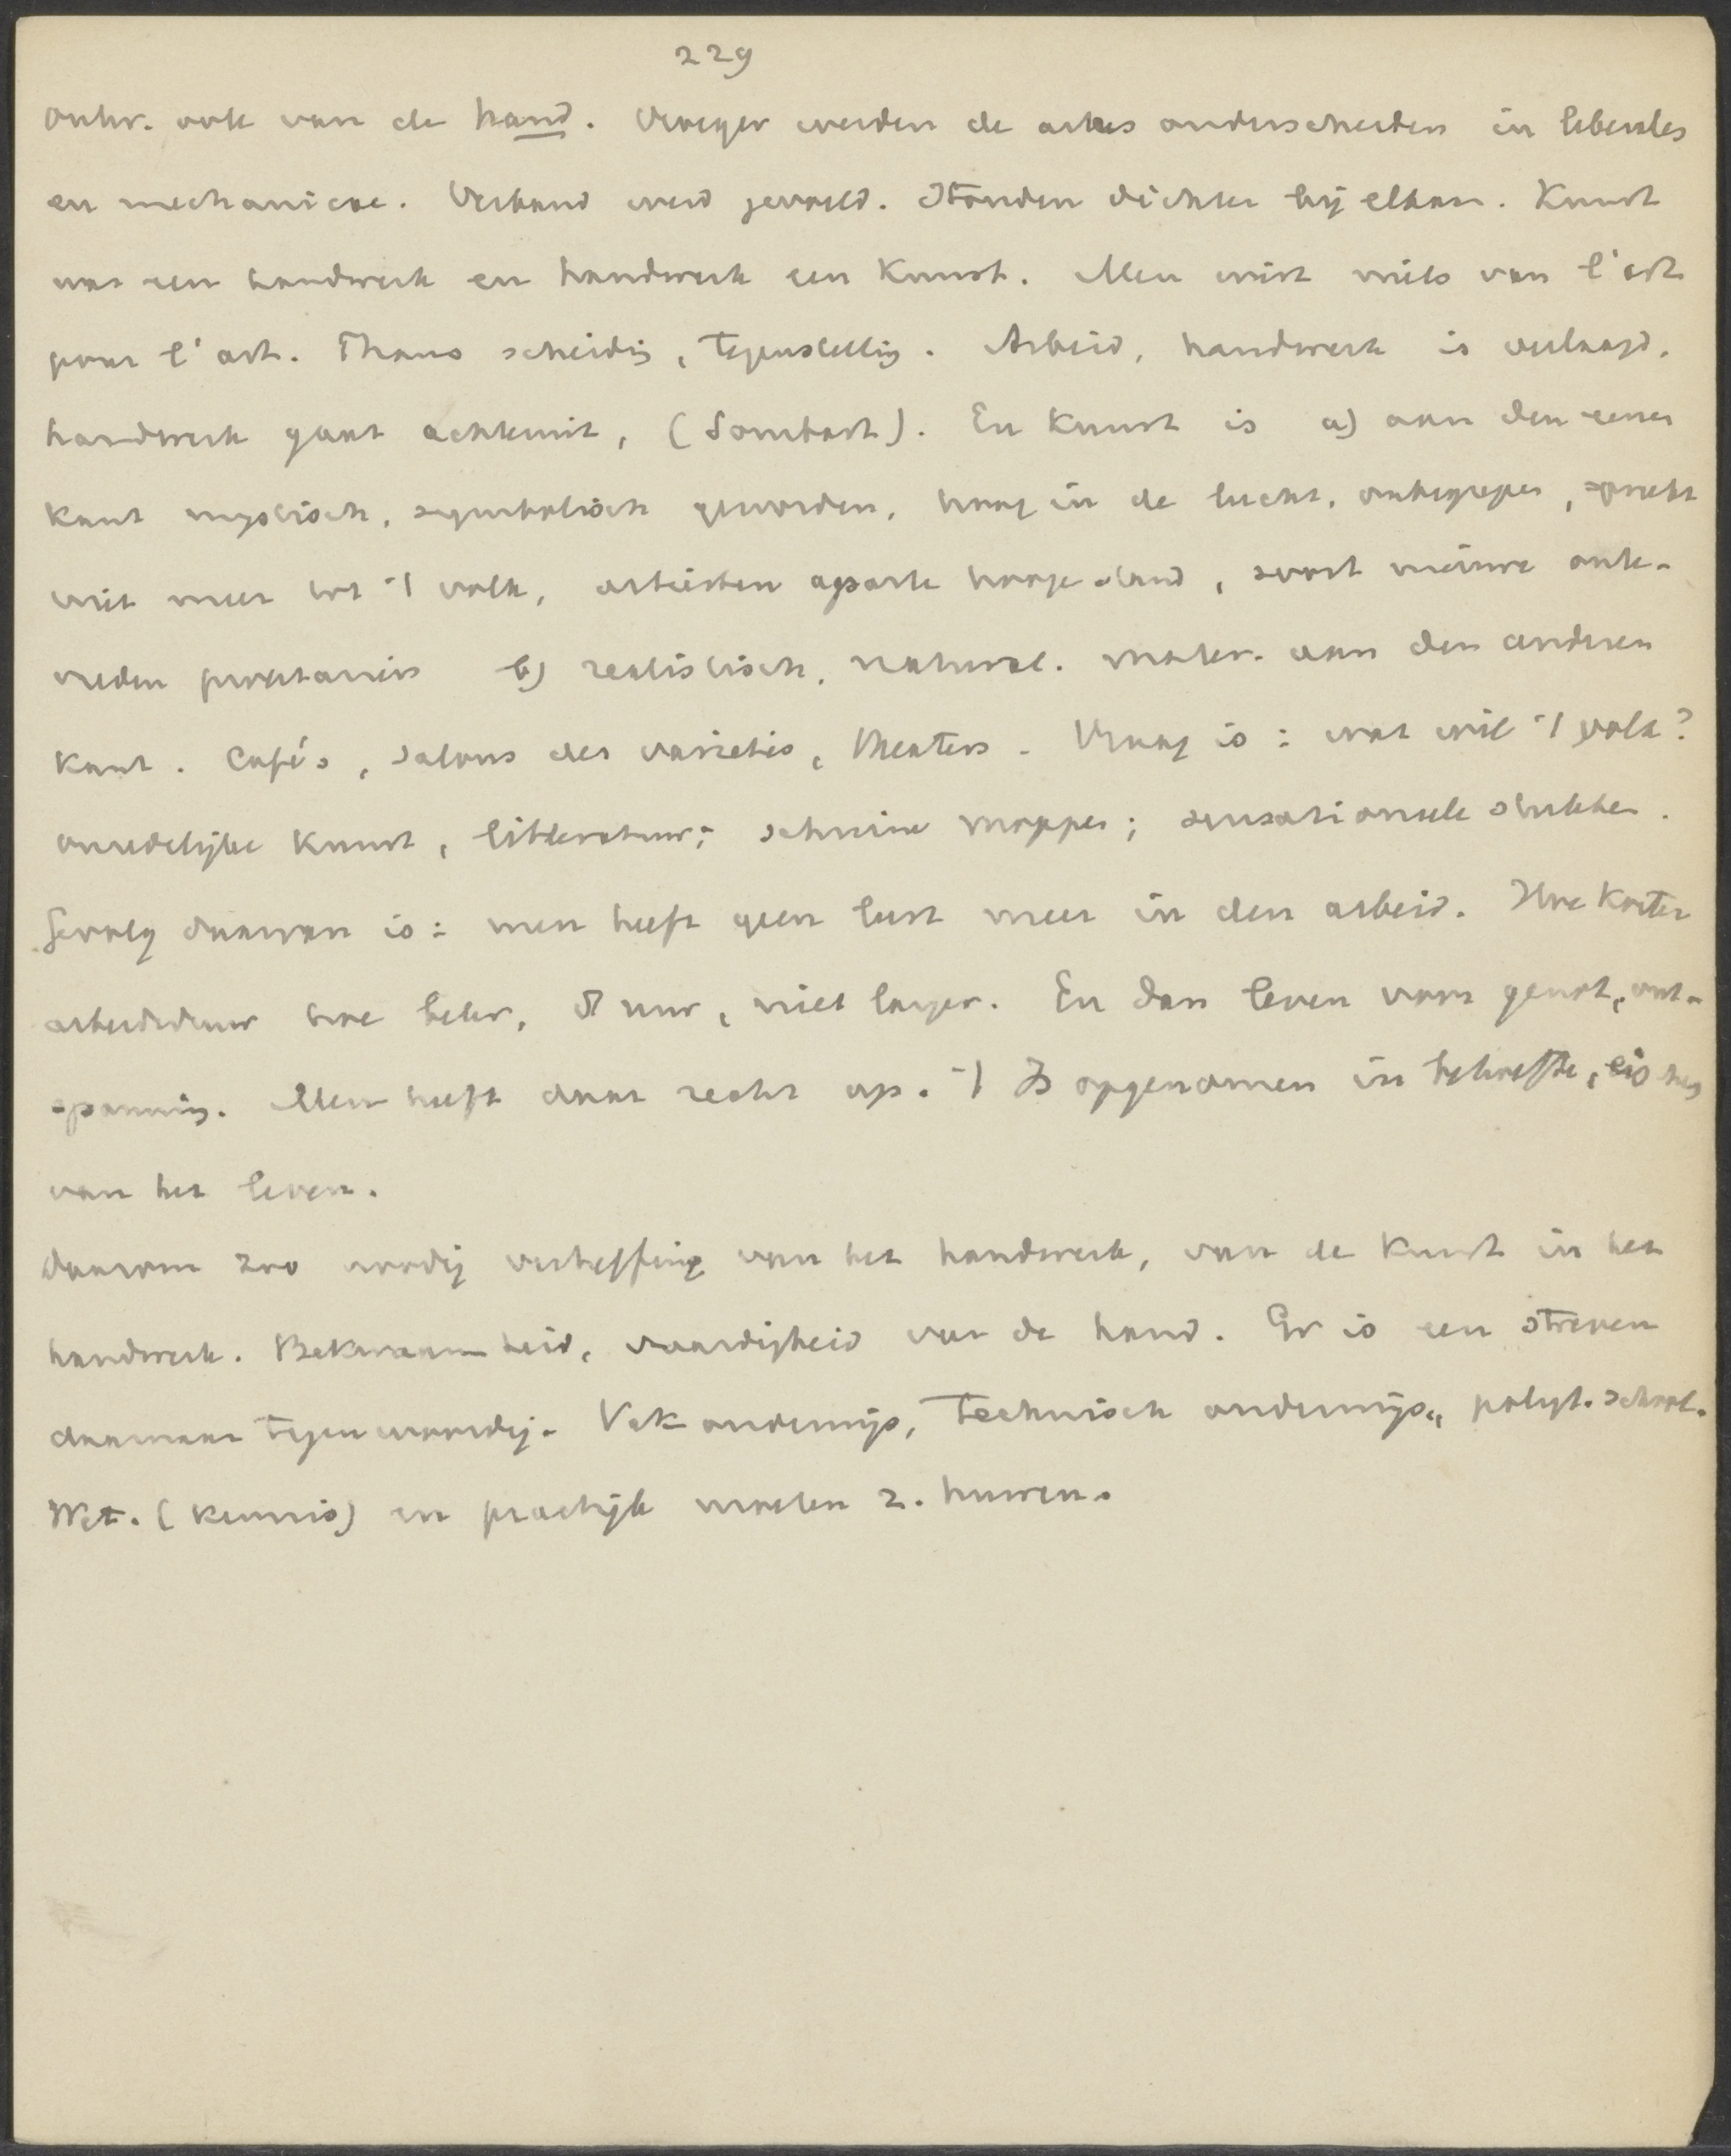 229
Ontw. ook van de hand. Vroeger werden de artes onderscheiden in liberales
en mechanicae. Verband werd gevoeld. Stonden dichter bij elkaar. Kunst
was een handwerk en handwerk een Kunst. Men wist niets van l'art
pour l'art. Thans scheidig, tegenstellig. Arbeid, handwerk is verlaagd.
handwerk gaat achteruit, (Sombart). En Kunst is a) aan den eenen
kant mystisch, symbolisch geworden, hoog in de lucht, onbegrepen, spreekt
niet meer tot 't volk, artiesten aparte hooge stand, soort nieuwe
b) realistisch, natural. mater. aan den anderen
kant. Cafés, salons des varietés, theaters. Vraag is: wat wil 't volk?
onzedelijke Kunst, litteratuur; schuine moppen; sensationeele stukken.
Gevolg daarvan is: men heeft geen lust meer in den arbeid. Hoe korter
arbeidsduur hoe beter, 8 uur, niet langer. En dan leven voor genot, ont-
spannig. Men heeft daar recht op. 't Is opgenomen in behoefte, eischen
van het leven.
Daarom zoo noodig verheffing van het handwerk, van de Kunst in het
handwerk. Bekwaamheid, vaardigheid van de hand. Er is een streven
daarnaar tegenwoordig. Vakonderwijs, Technisch onderwijs, polyt. school.
Wet. (kennis) en practijk moeten z. huwen.